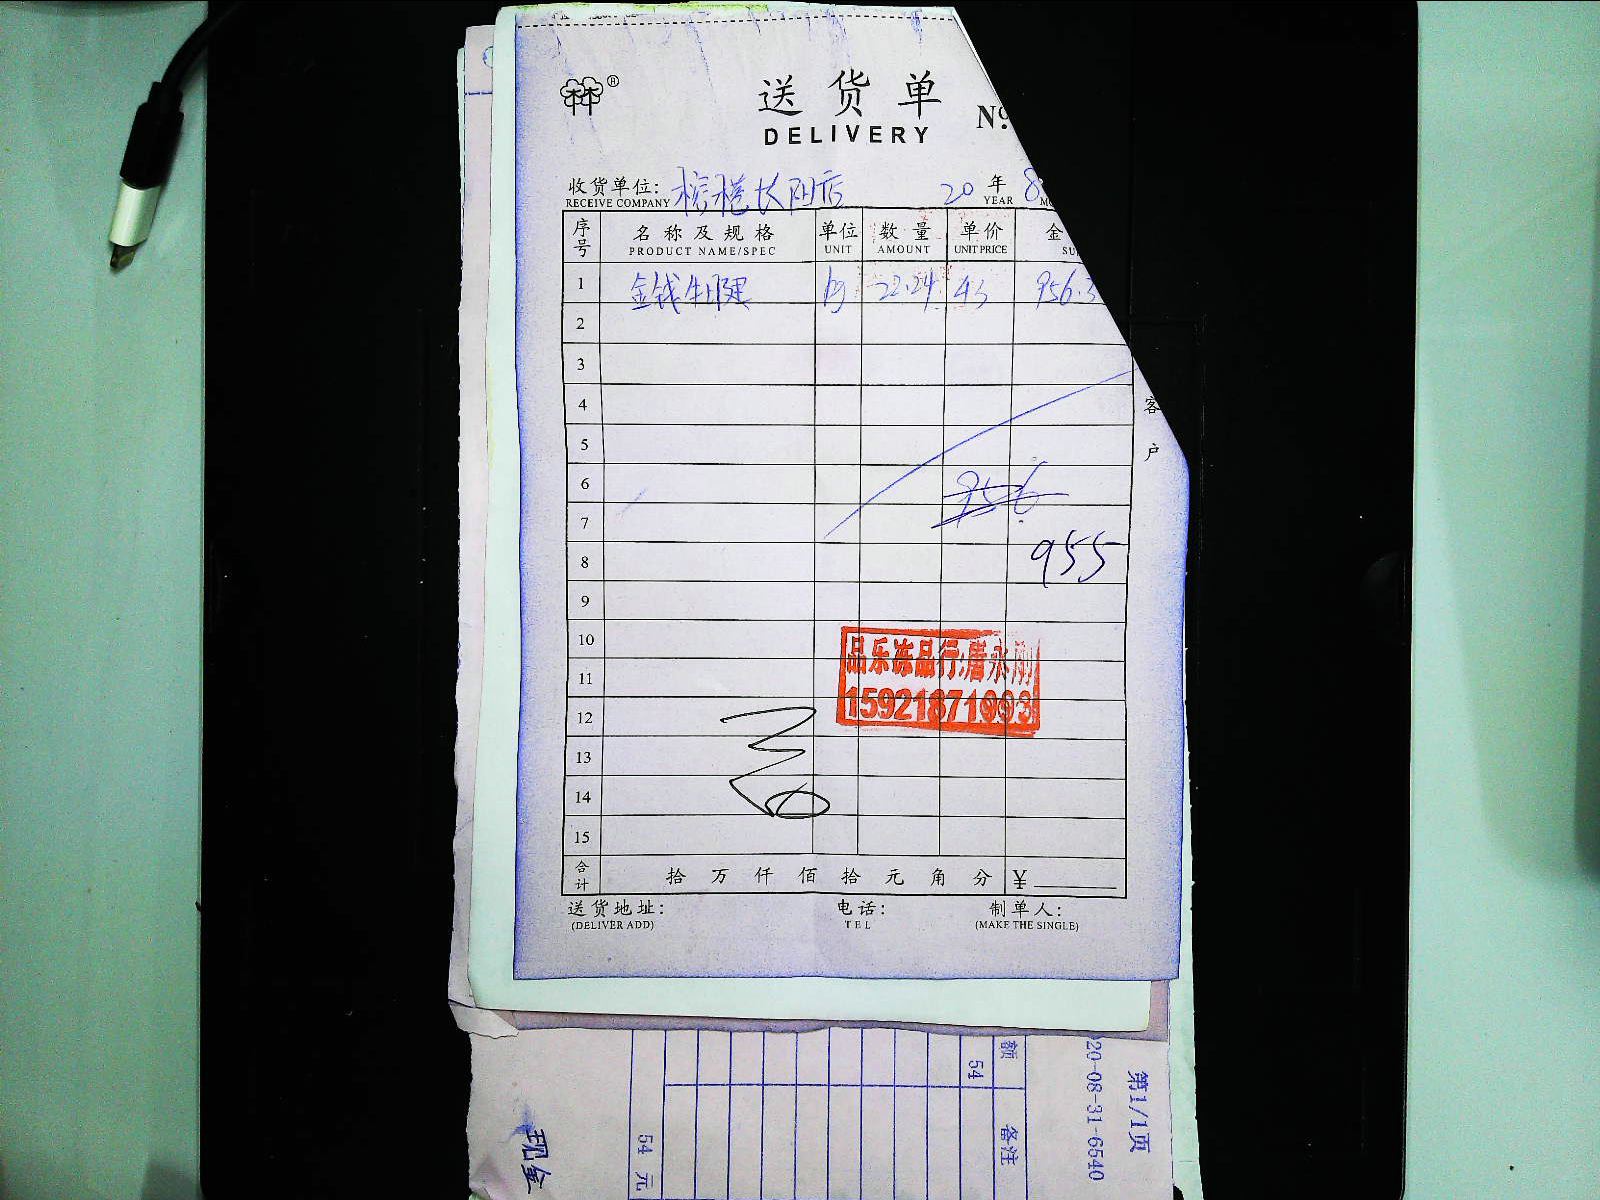 送货单
DELIVERY
№
收货单位: 长阳店 20 年 8
RECEIVE COMPANY YEAR
序号 名称及规格 单位 数量 单价 金
PRODUCT NAME/SPEC UNIT AMOUNT UNIT PRICE SU
1 金钱牛腱 kg 22.24 43 956.3
2
3
4
客户
5
6 956
7
8 955
9
10
品乐冻品行:唐永刚
11
15921871093
12
13
14
15
合计 拾 万 仟 佰 拾 元 角 分 ¥
送货地址: 电话: 制单人:
(DELIVER ADD) TEL (MAKE THE SINGLE)
第1/1页
20-08-31-6540
额 备注
54
54 元
现金